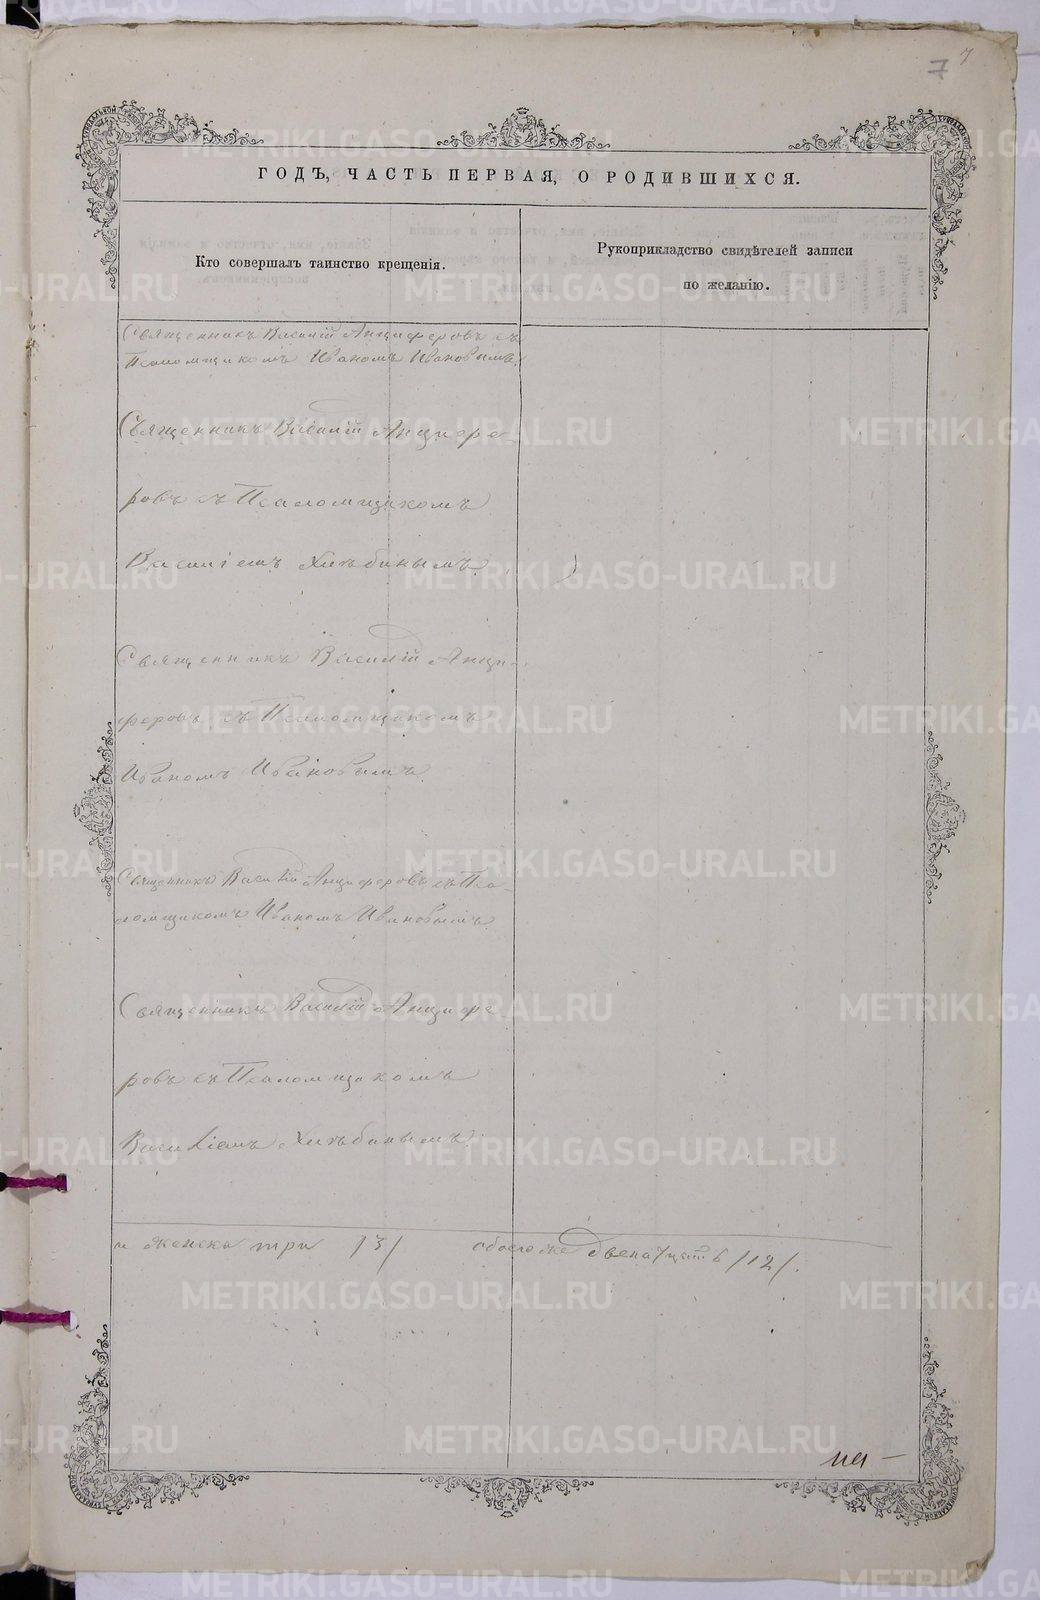 7 7
ГОДЪ, ЧАСТЬ ПЕРВАЯ, О РОДИВШИХСЯ.
Кто совершалъ таинство крещенія.
Рукоприкладство свидѣтелей записи
по желанію.
Священникъ Василій Анциферовъ съ
Псаломщикомъ Иваномъ Ивановымъ.
Священникъ Василій Анцифе-
ровъ съ Псаломщикомъ
Василіемъ Хлѣбинымъ
Священникъ Василій Анци-
феровъ съ Псаломщикомъ
Иваномъ Ивановымъ.
Священникъ Василій Анциферовъ съ Пса-
ломщикомъ Иваномъ Ивановымъ
Священникъ Василій Анцифе
ровъ съ Псаломщикомъ
Василіемъ Хлѣбинымъ
и женска три /3/ обоего же двенадцать /12/.
METRIKI.GASO-URAL.RU